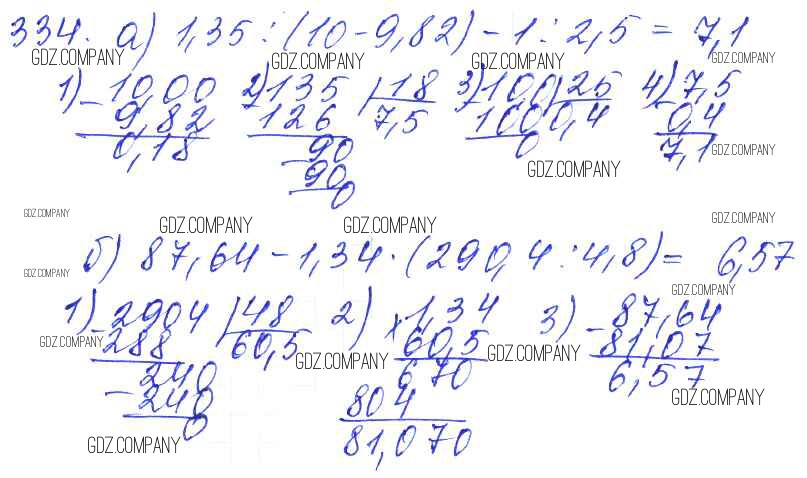 334. а) 1,35 : (10 - 9,82) - 1 : 2,5 = 7,1
GDZ.COMPANY GDZ.COMPANY GDZ.COMPANY GDZ.COMPANY
1) 10,00 2) 135 | 18 3) 100 | 25 4) 7,5
- 9,82 126 7,5 100 0,4 - 0,4
0,18 - 90 0 7,1 GDZ.COMPANY
90 GDZ.COMPANY
0
GDZ.COMPANY GDZ.COMPANY GDZ.COMPANY GDZ.COMPANY
б) 87,64 - 1,34 · (290,4 : 4,8) = 6,57
GDZ.COMPANY GDZ.COMPANY
1) 2904 | 48 2) 1,34 3) - 87,64
- 288 60,5 × 60,5 81,07
GDZ.COMPANY GDZ.COMPANY GDZ.COMPANY
240 670 6,57
- 240 804 GDZ.COMPANY
0 81,070
GDZ.COMPANY